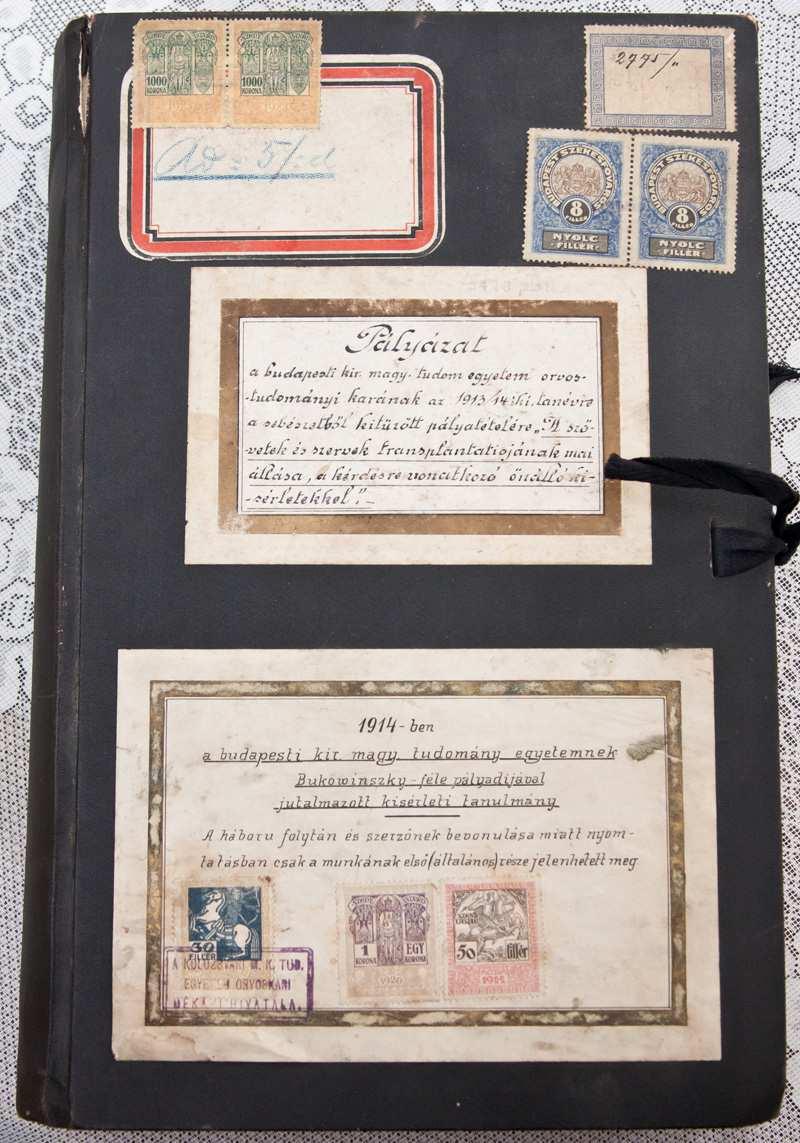 1000
KORONA
1000
KORONA
2775/
BUDAPEST SZÉKESFŐVÁROS
8
FILLÉR
NYOLC
FILLÉR
BUDAPEST SZÉKESFŐVÁROS
8
FILLÉR
NYOLC
FILLÉR
Pályázat
a budapesti kir. magy. tudom egyetem orvos-
-tudományi karának az 1913/14=ki, tanévre
a sebészetből kitűzött pályatételére „A szö-
vetek és szervek transplantatiojának mai
állása, a kérdésre vonatkozó önálló ki-
-sérletekkel”.-
1914-ben
a budapesti kir. magy. tudomány egyetemnek
Bukowinszky-féle pályadijával
jutalmazott kisérleti tanulmány
A háboru folytán és szerzőnek bevonulása miatt nyom-
tatásban csak a munkának első (általános) része jelenhetett meg
30
FILLÉR
1
KORONA
EGY
KORONA
1920
50 fillér
A KOLOZSVÁRI M. K. TUD.
EGYETEM ORVOSKARI
DÉKÁNI HIVATALA.